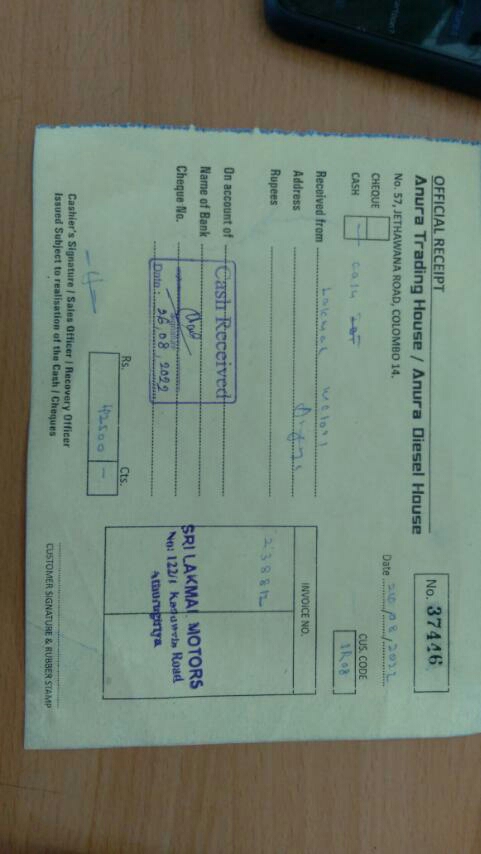 OFFICIAL RECEIPT
Anura Trading House / Anura Diesel House
No. 57, JETHAWANA ROAD, COLOMBO 14.
No. 37446
Date 26/08/2022
CHEQUE
CASH
CUS. CODE
Received from Lakmal motors
Address
Rupees
On account of
Name of Bank
Cheque No.
Cash Received
Date: 26.08.2022
INVOICE NO.
SRI LAKMAL MOTORS
No: 122/1 Kaduwela Road
Athurugiriya
Rs. Cts.
42500 -
Cashier's Signature / Sales Officer / Recovery Officer
Issued Subject to realisation of the Cash / Cheques
CUSTOMER SIGNATURE & RUBBER STAMP